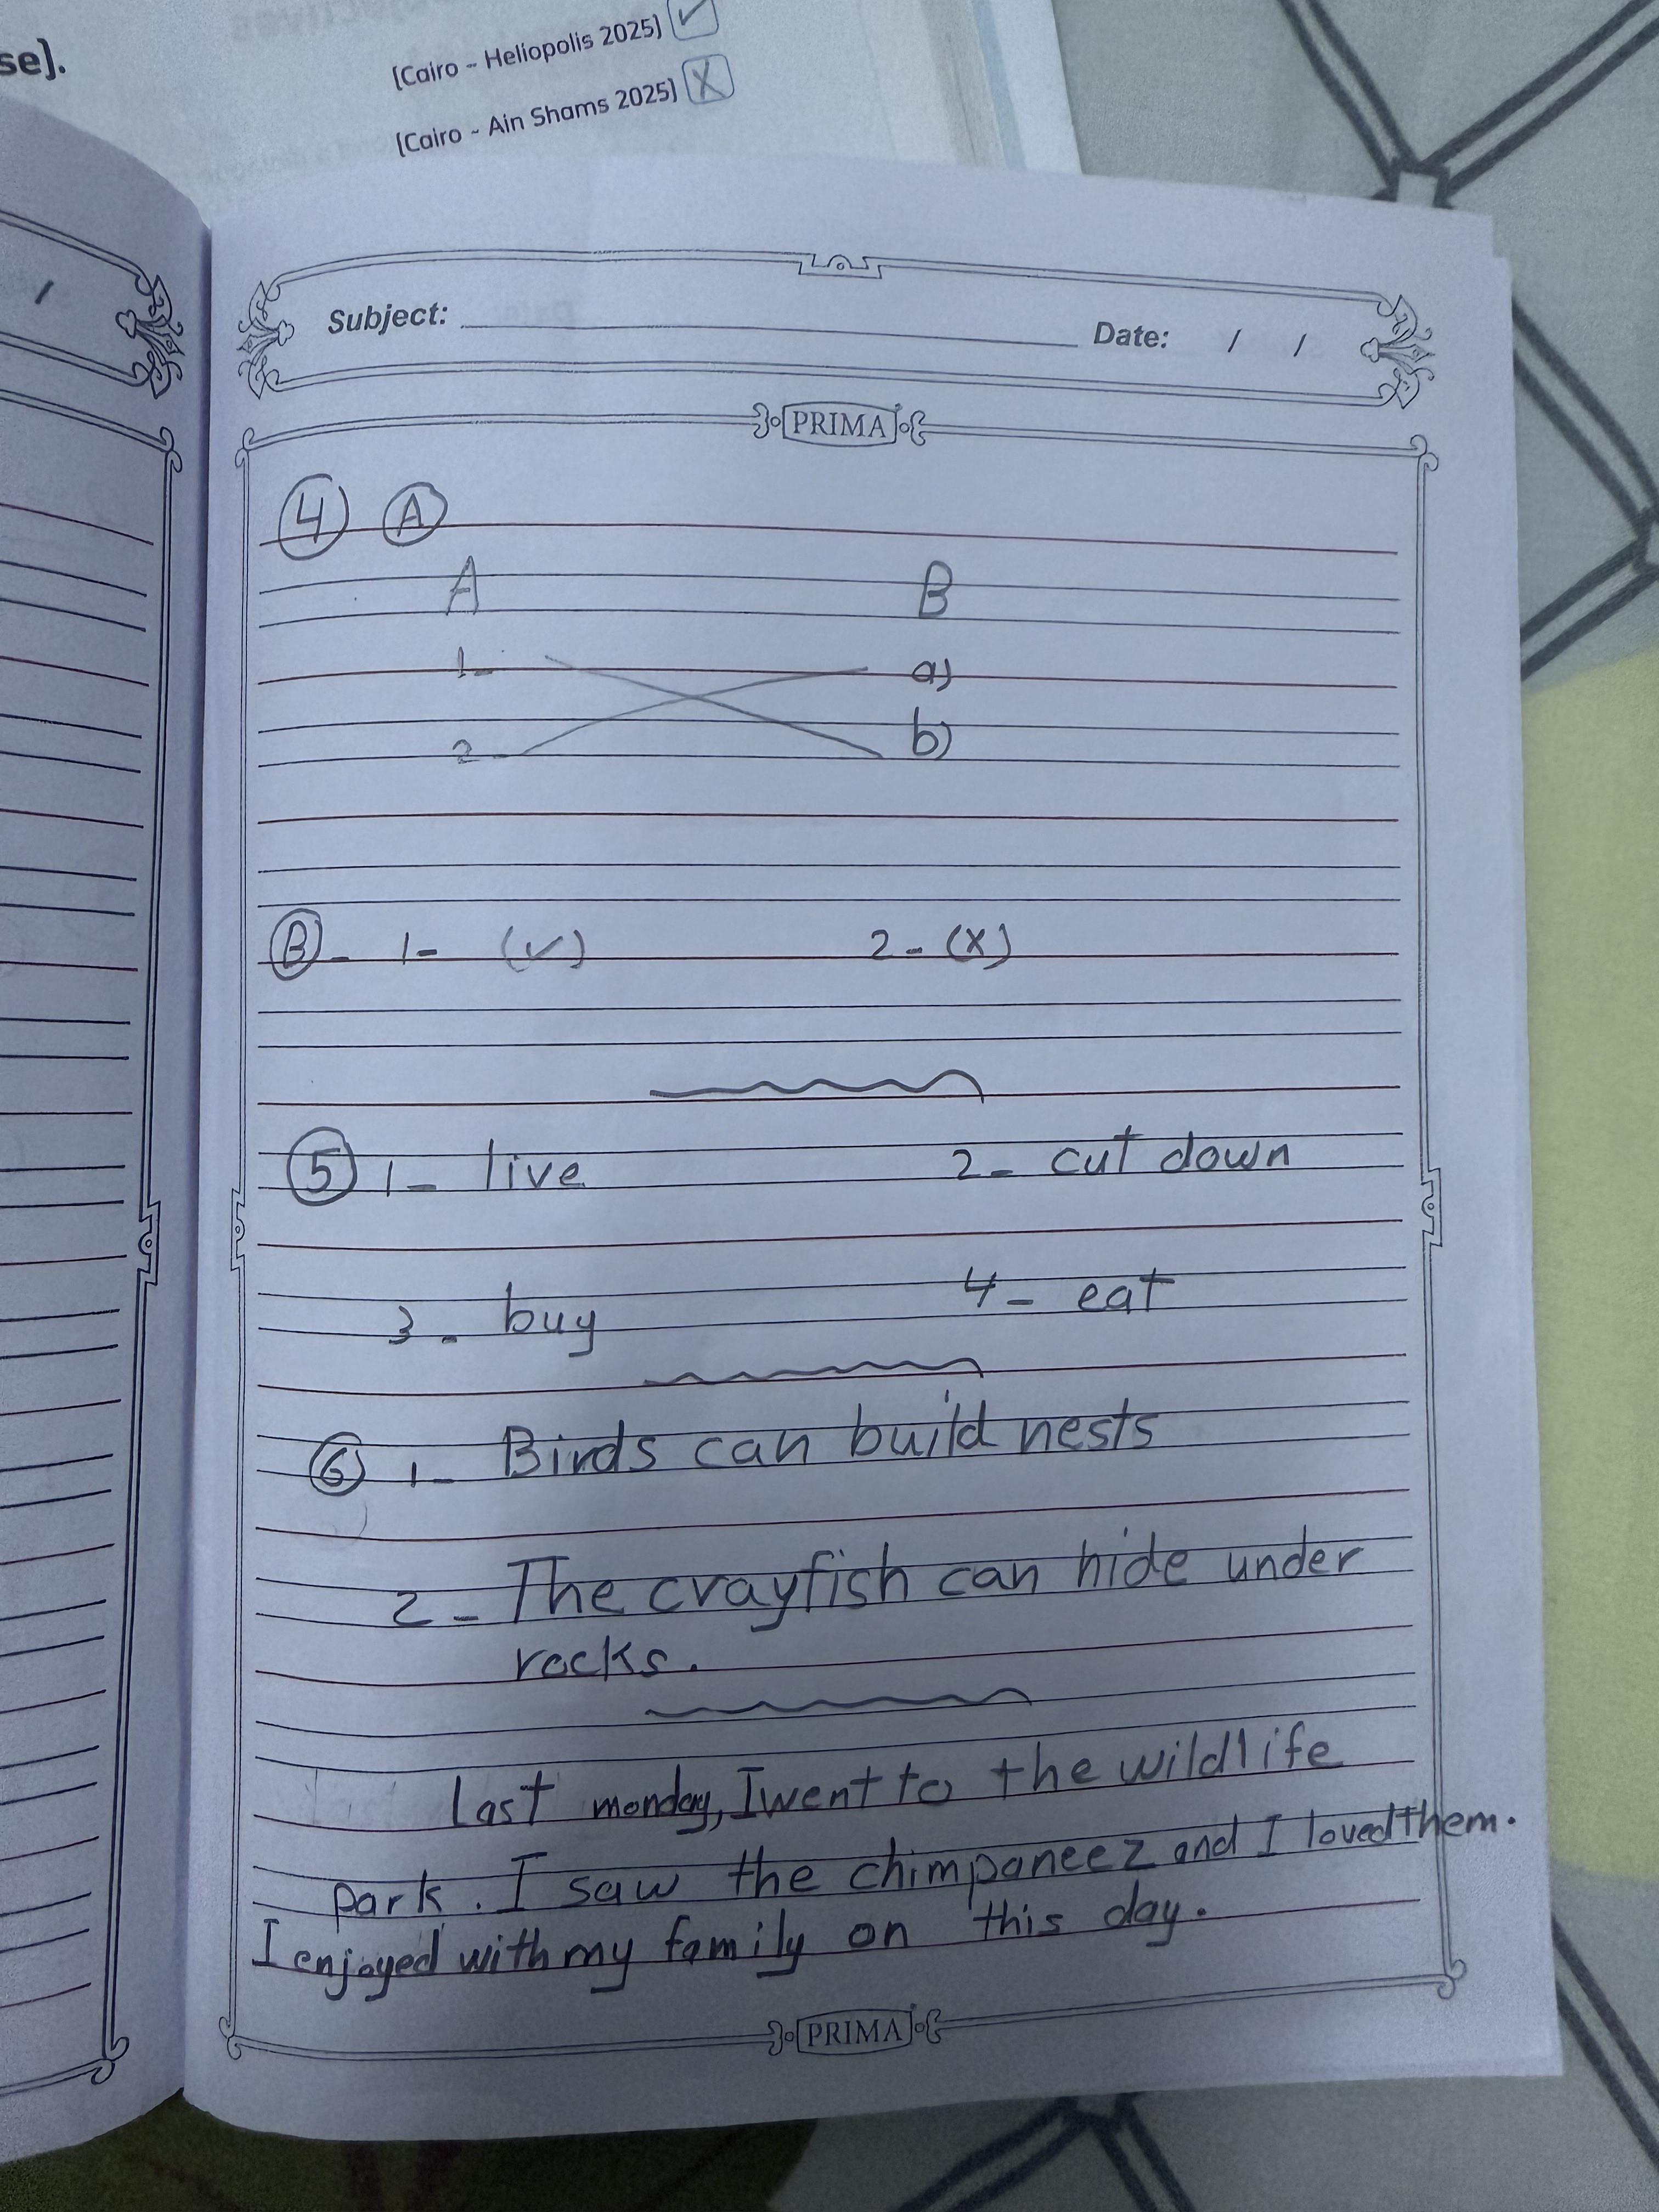 se].
[Cairo - Heliopolis 2025] ✓
[Cairo - Ain Shams 2025] X
/
Subject: Date: / /
PRIMA
4 A
A B
1- a)
2- b)
B- 1- (✓) 2- (X)
5 1- live 2- cut down
3- buy 4- eat
6 1- Birds can build nests
2- The crayfish can hide under
rocks.
Last monday, I went to the wildlife
park. I saw the chimpaneez and I loved them.
I enjoyed with my family on this day.
PRIMA